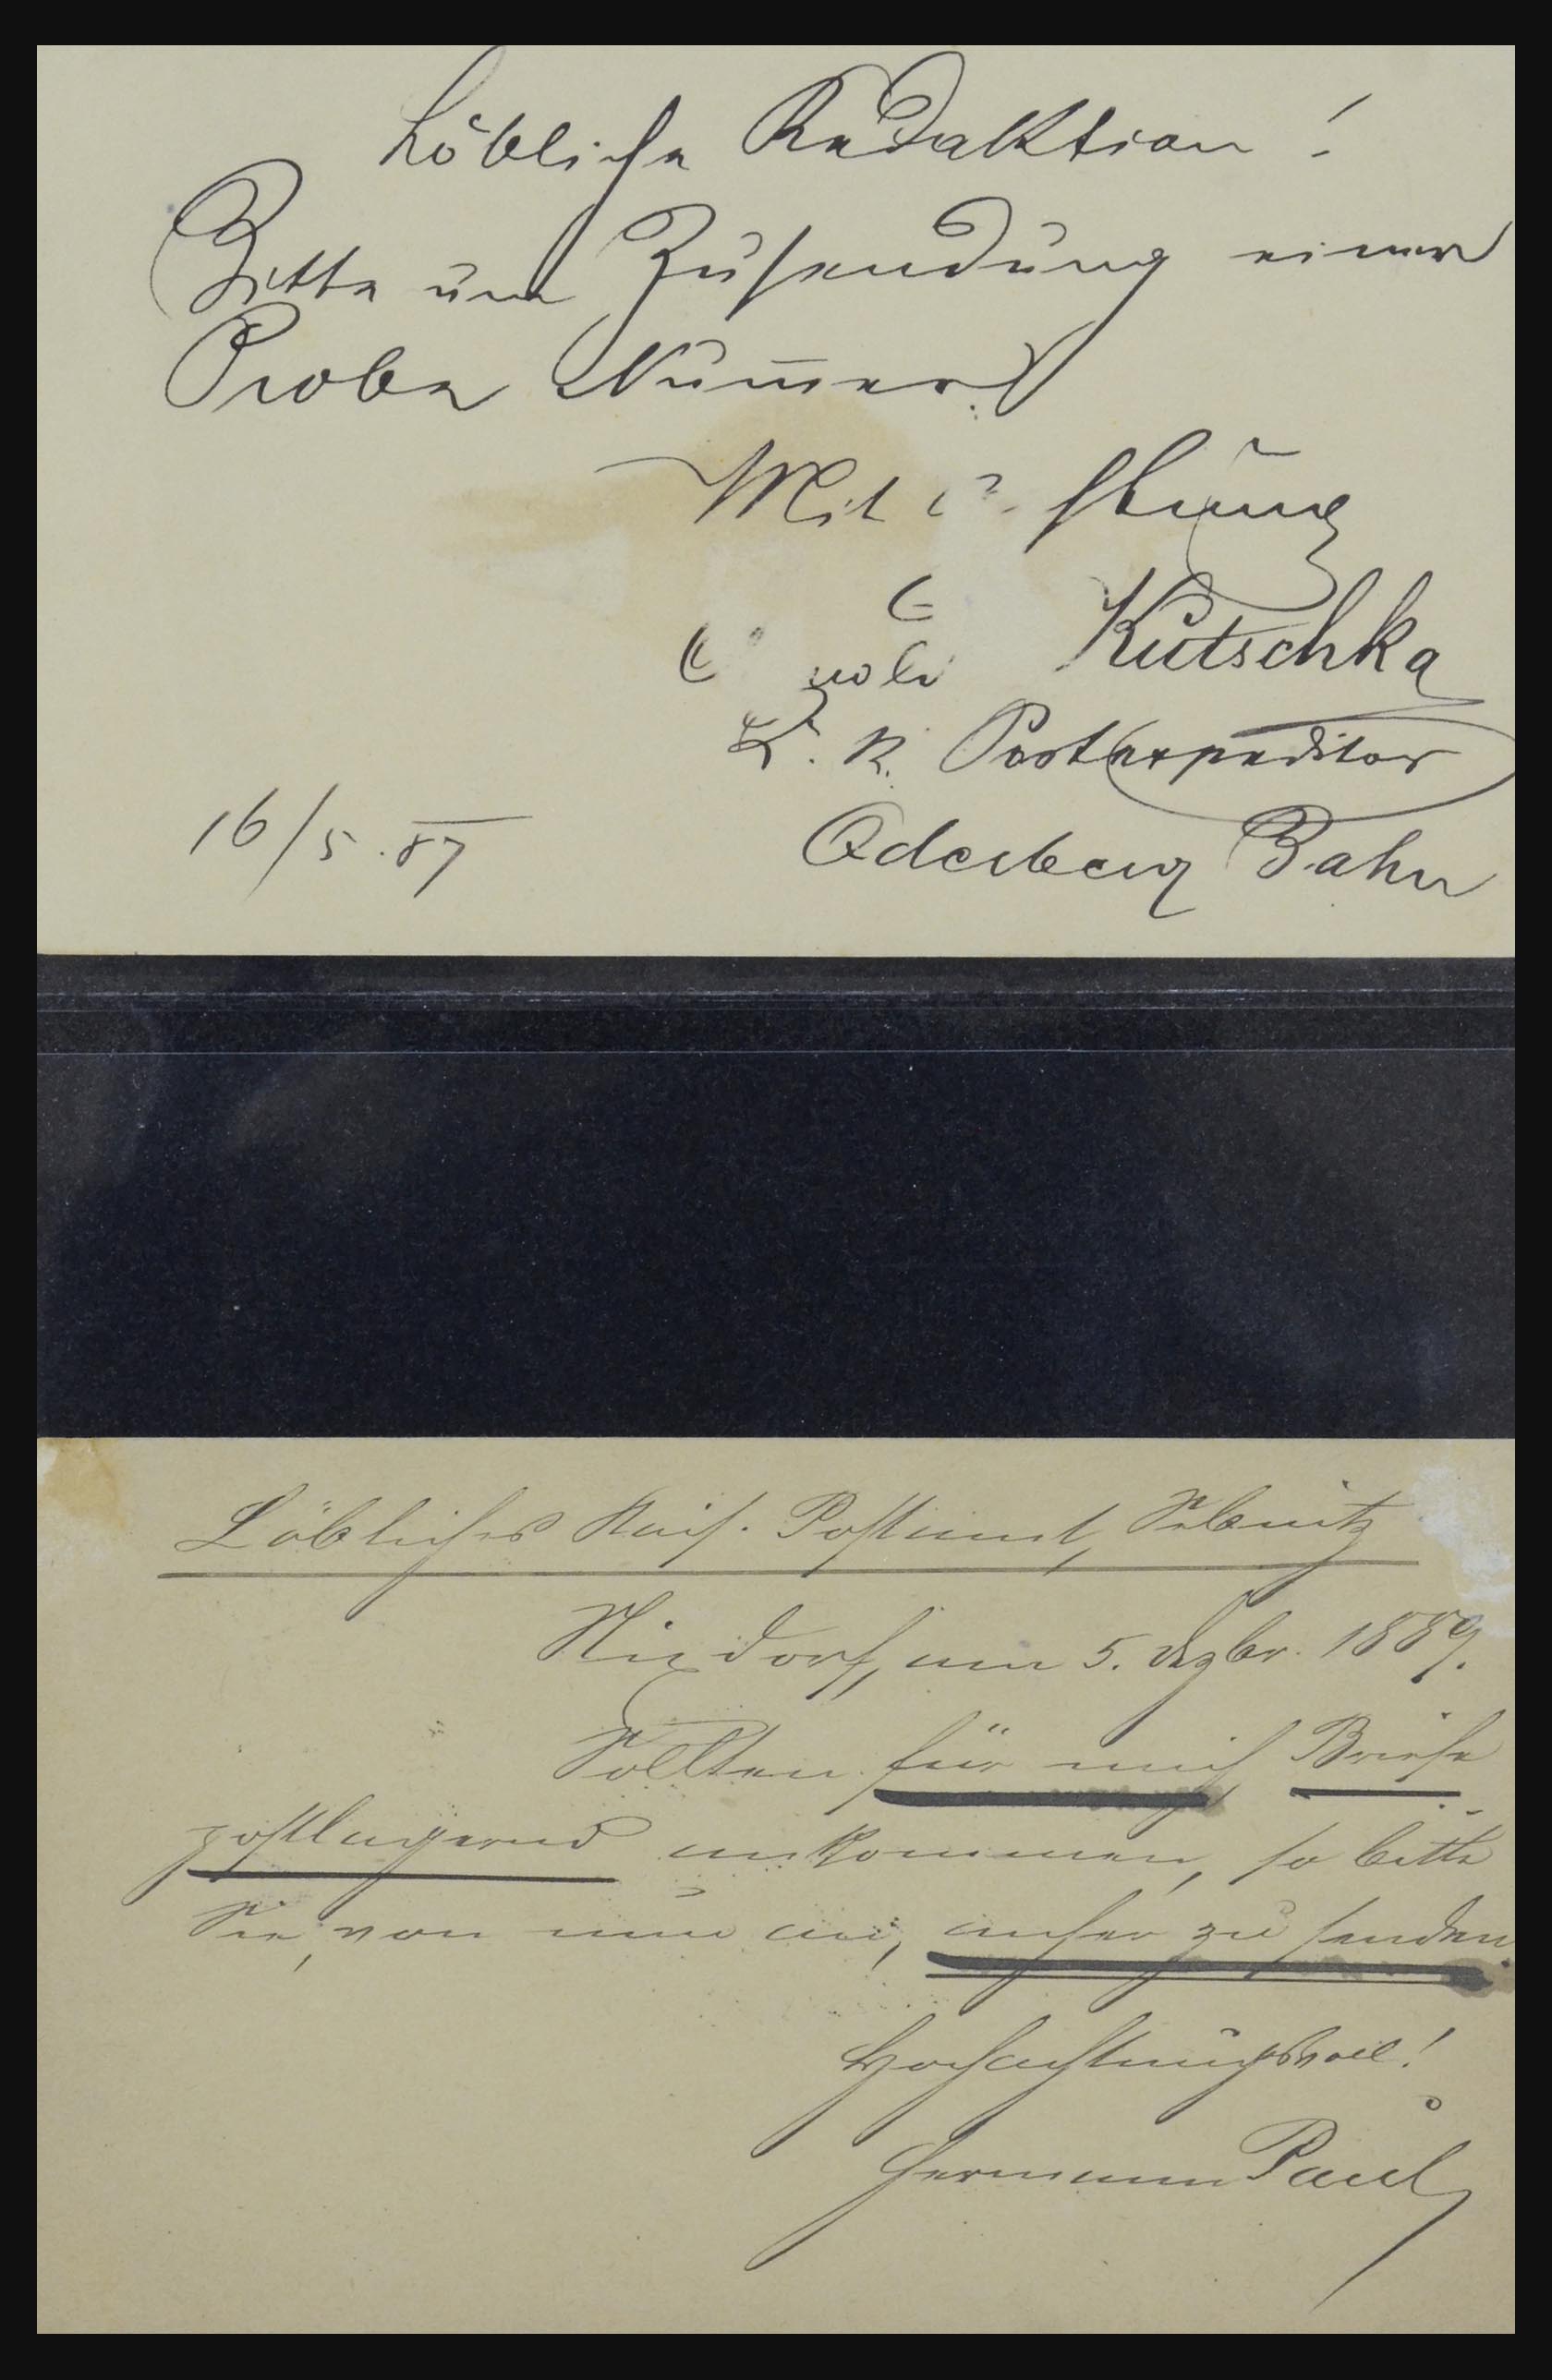 Löbliche Redaktion!
Bitte um Zusendung einer
Probe Nummer
Mit
Kutschka
K. K. Postexpeditor
16/5.87 Oderberg Bahn
Löbliches Kais. Postamt, Sebnitz
Nixdorf, am 5. Dezbr. 1889.
Sollten für mich Briefe
postlagernd ankommen, so bitte
Sie, von nun an, anher zu senden.
Hochachtungsvoll!
Hermann Paul